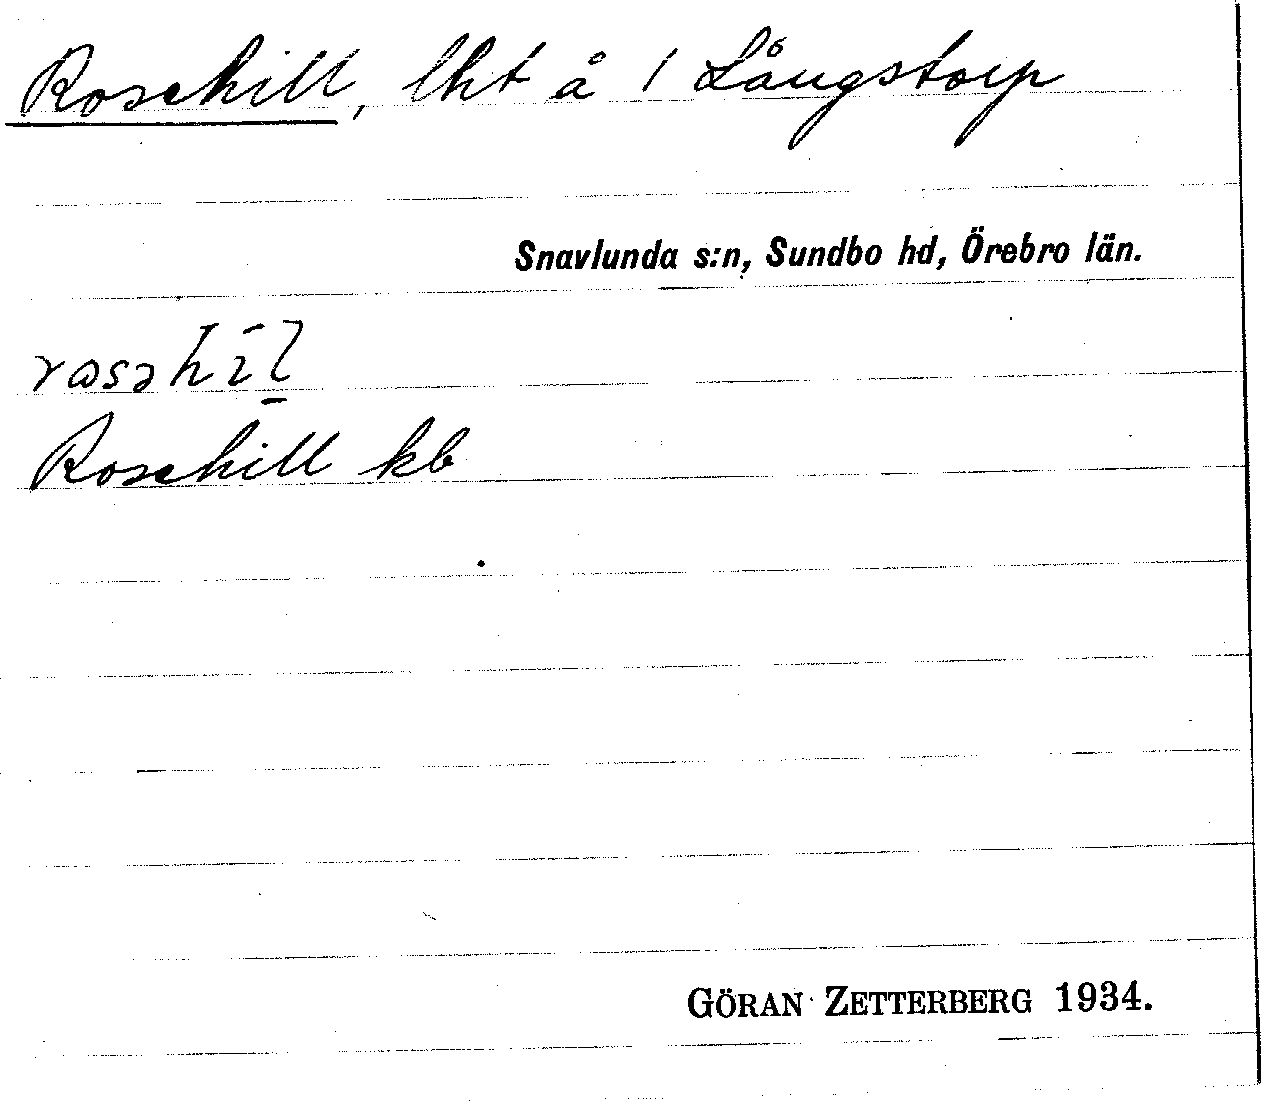 Rosehill, lht å 1 Långstorp
Snavlunda s:n, Sundbo hd, Örebro län.
Rosehill kb
GÖRAN ZETTERBERG 1934.